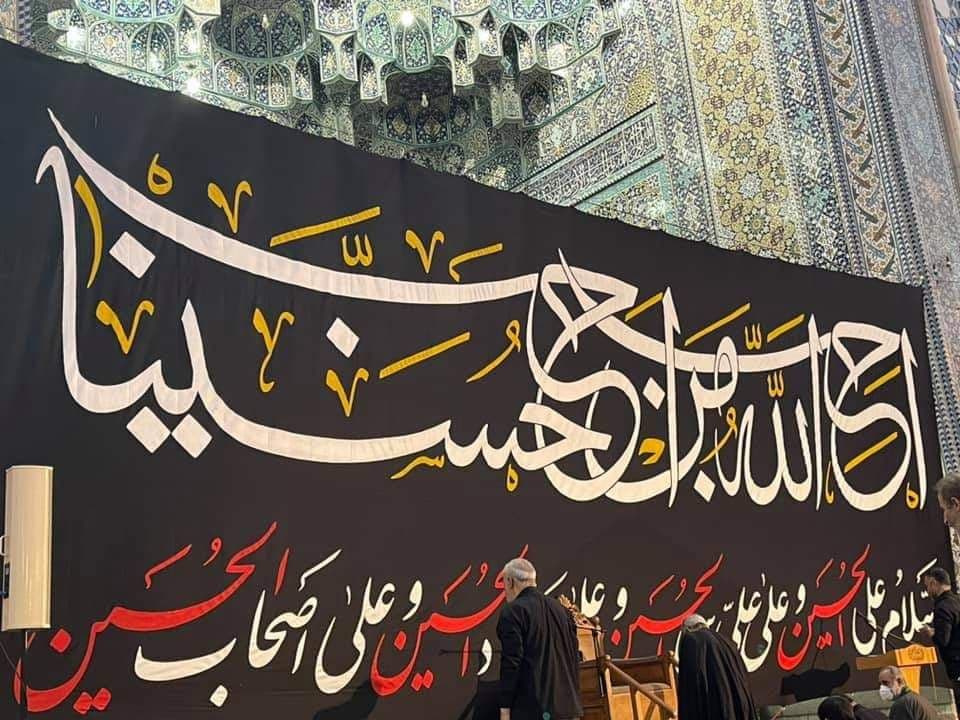 احب الله من احب حسينا
السلام علی الحسین و علی علی بن الحسین و علی اولاد الحسین و علی اصحاب الحسین